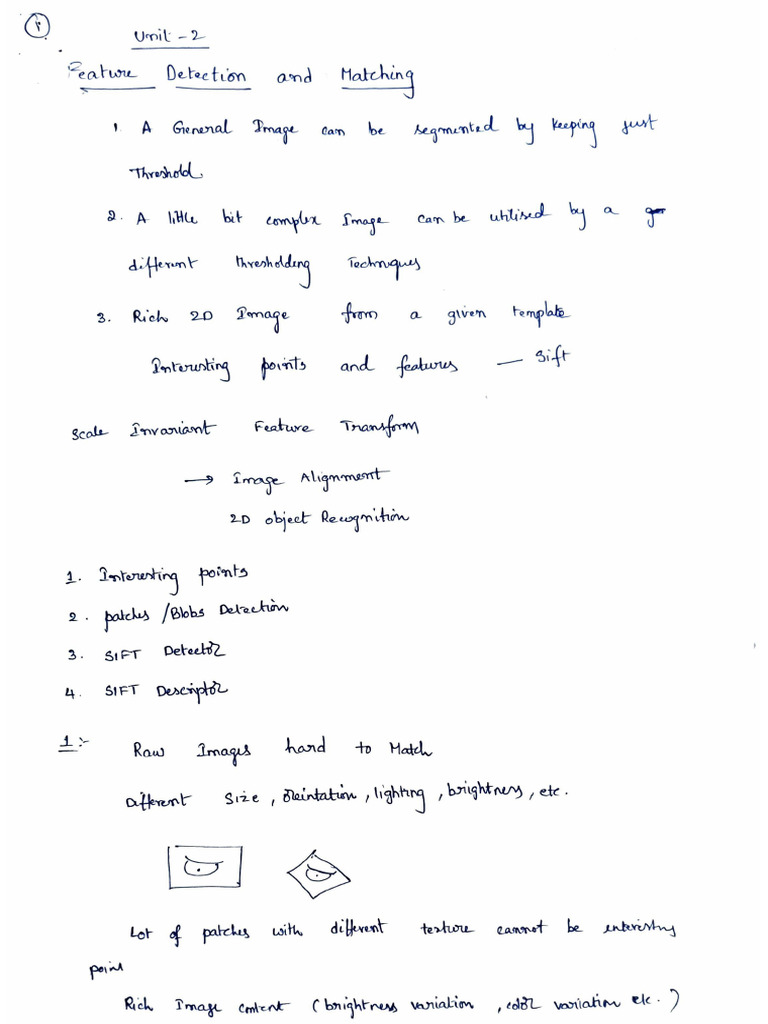 Unit - 2
Feature Detection and Matching
1. A General Image can be segmented by keeping just
Threshold.
2. A little bit complex Image can be utilised by a
different thresholding Techniques
3. Rich 2D Image from a given template
Interesting points and features — Sift
Scale Invariant Feature Transform
→ Image Alignment
2D object Recognition
1. Interesting points
2. patches /Blobs Detection
3. SIFT Detector
4. SIFT Descriptor
1:- Raw Images hard to Match
Different Size, Oreintation, lighting, brightness, etc.
Lot of patches with different texture cannot be interesting
point
Rich Image content (brightness variation, color variation etc.)